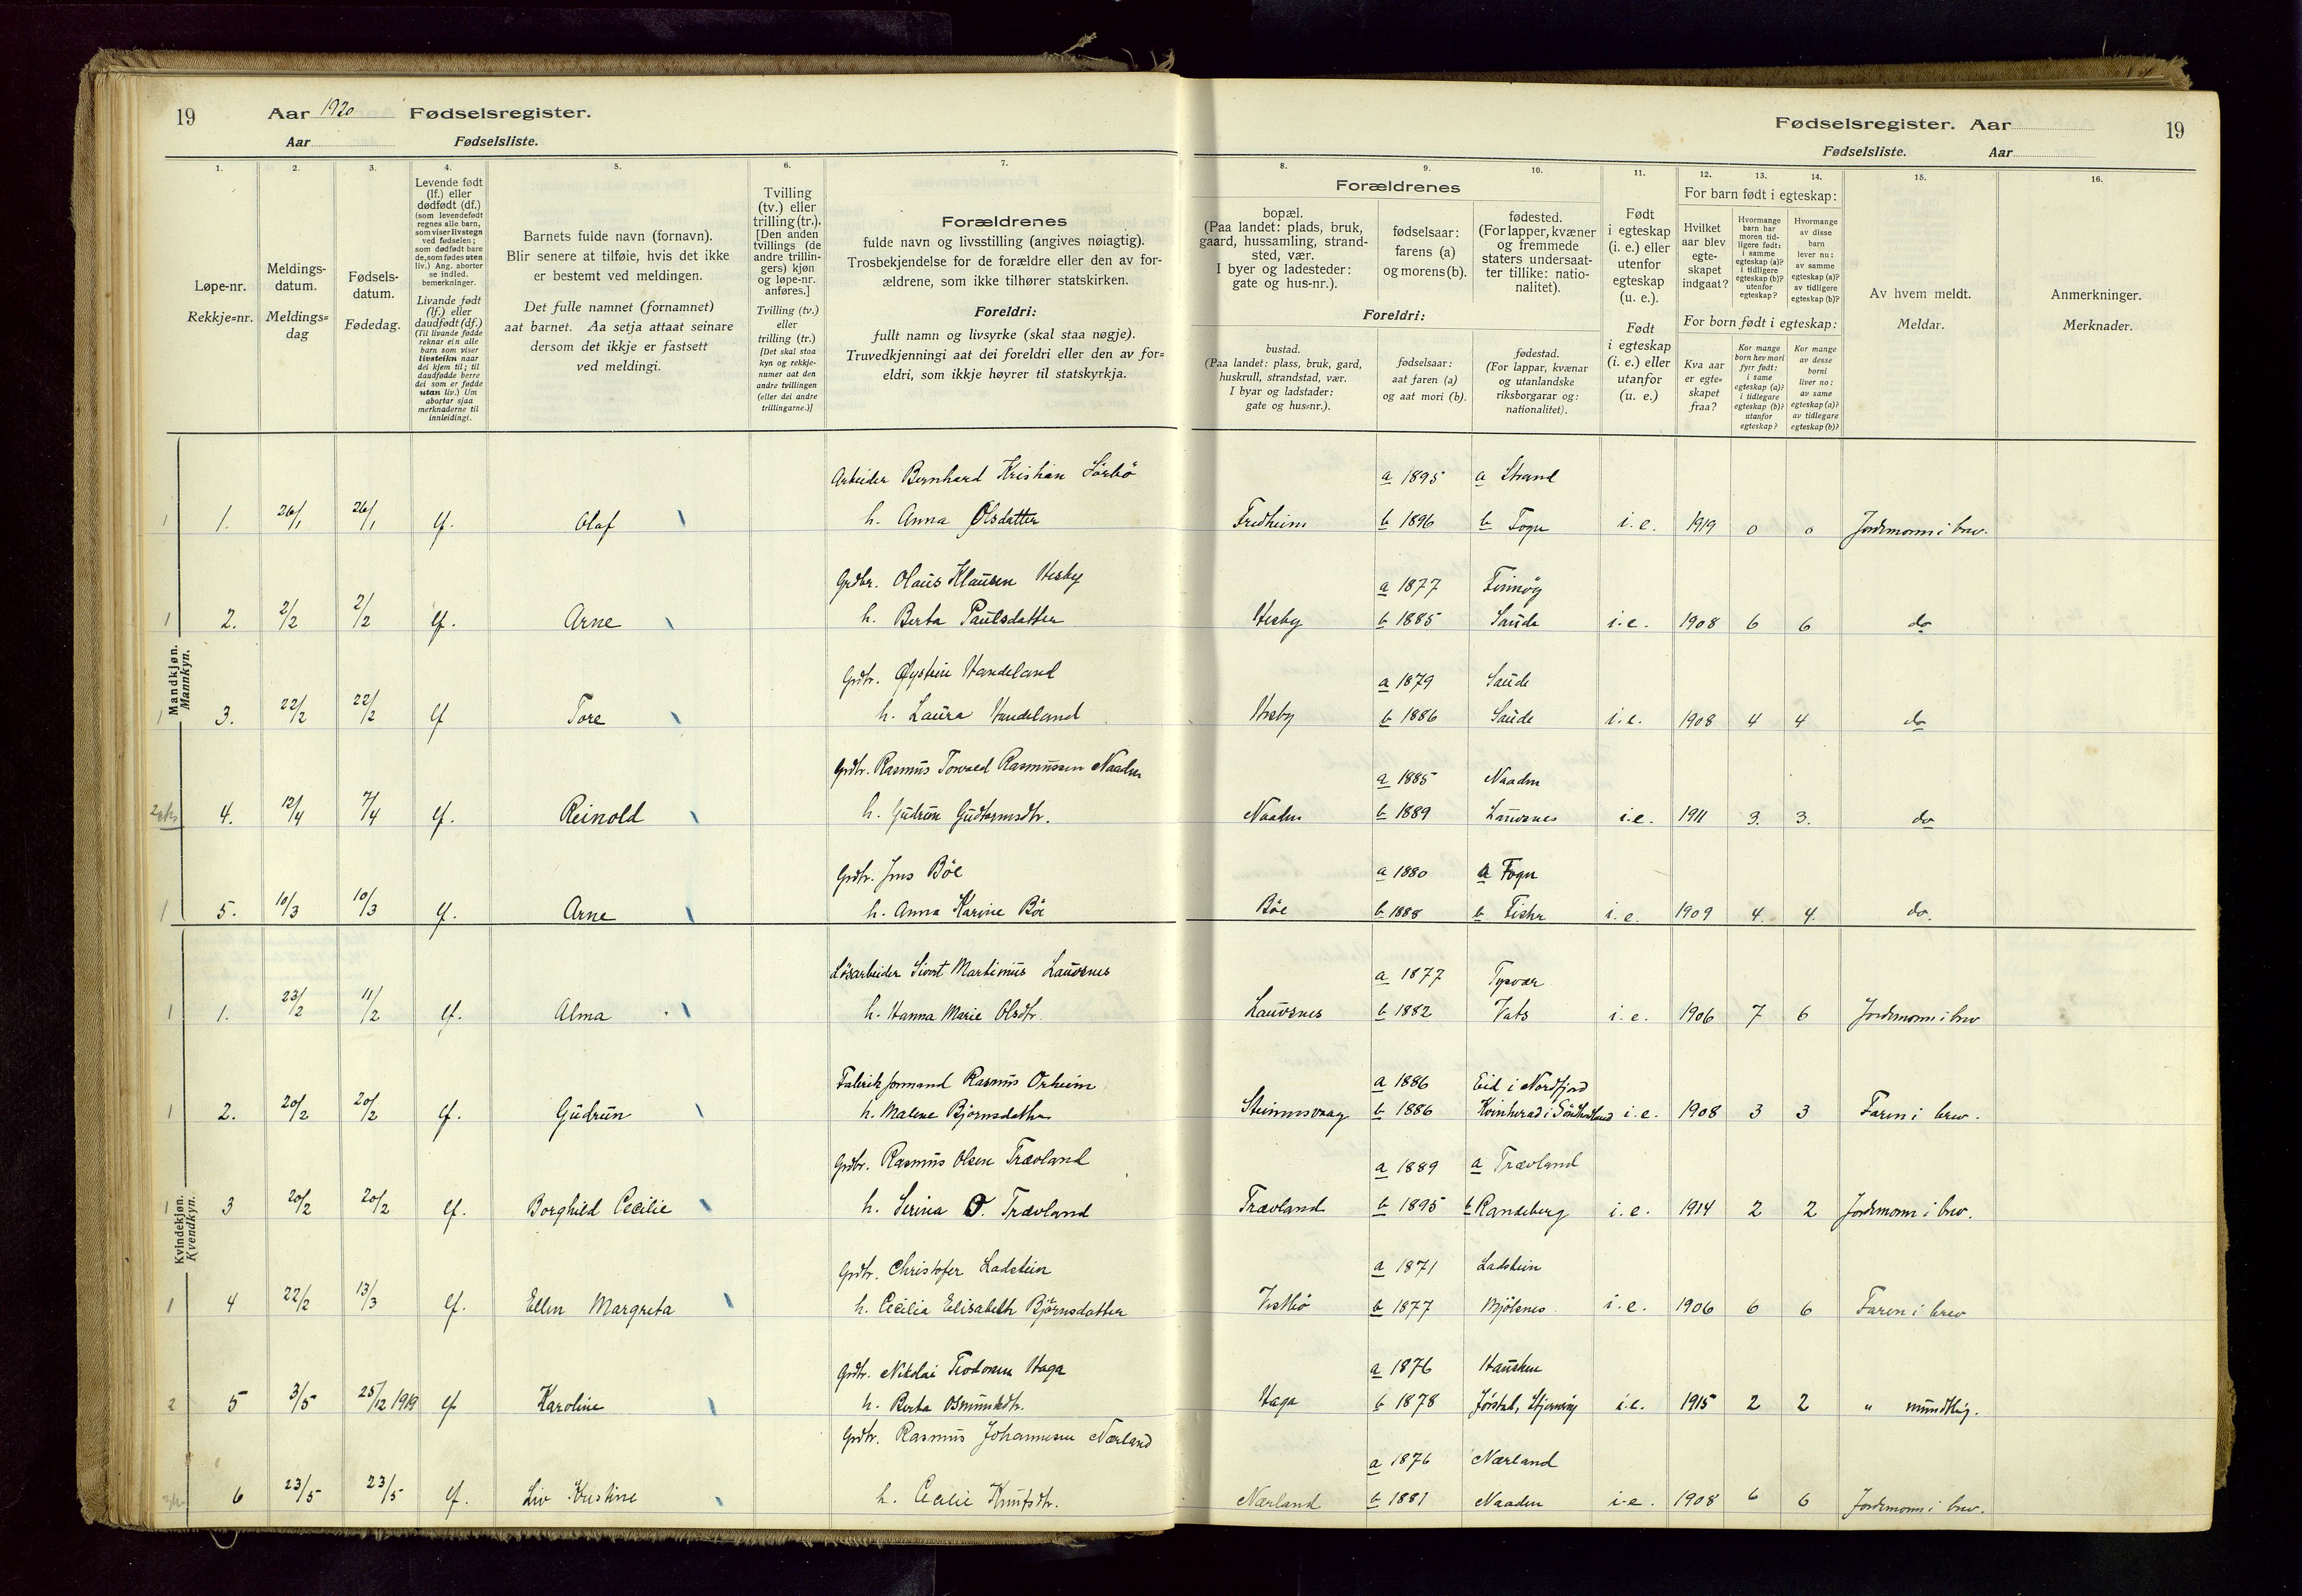 19
Aar 1920 Fødselsregister.
Aar Fødselsliste.
1.
2.
3.
4.
5.
6.
7.
Løpe-nr.
Rekkje=nr.
Meldings-
datum.
Meldings=
dag
Fødsels-
datum.
Fødedag.
Levende født
(lf.) eller
dødfødt (df.)
(som levendefødt
regnes alle barn,
som viser livstegn
ved fødselen;
som dødfødt bare
de, som fødes uten
liv.) Ang. aborter
se indled.
bemerkninger.
Livande født
(lf.) eller
daudfødt (df.)
(Til livande fødde
reknar ein alle
barn som viser
livsteikn naar
dei kjem til; til
daudfødde berre
dei som er fødde
utan liv.) Um
abortar sjaa
merknaderne til
innleidingi.
Barnets fulde navn (fornavn).
Blir senere at tilføie, hvis det ikke
er bestemt ved meldingen.
Det fulle namnet (fornamnet)
aat barnet. Aa setja attaat seinare
dersom det ikkje er fastsett
ved meldingi.
Tvilling
(tv.) eller
trilling (tr.).
[Den anden
tvillings (de
andre trillin-
gers) kjøn
og løpe-nr.
anføres.]
Tvilling (tv.)
eller
trilling (tr.)
[Det skal staa
kyn og rekkje-
numer aat den
andre tvillingen
(eller dei andre
trillingarne.)]
Forældrenes
fulde navn og livsstilling (angives nøiagtig).
Trosbekjendelse for de forældre eller den av for-
ældrene, som ikke tilhører statskirken.
Foreldri:
fullt namn og livsyrke (skal staa nøgje).
Truvedkjenningi aat dei foreldri eller den av for=
eldri, som ikkje høyrer til statskyrkja.
Mandkjøn.
Mannkyn.
Arbeider Bernhard Kristian Sörbö
1. 26/1 26/1 lf. Olaf h. Anna Olsdatter
Grdbr. Olaus Klausen Hesby
2. 2/2 2/2 lf. Arne h. Berta Paulsdatter
Grdbr. Øystein Handeland
3. 22/2 22/2 lf Tore h. Laura Handeland
Grdbr. Rasmus Torvald Rasmussen Naaden
4. 12/4 7/4 lf. Reinold h. Gudrun Gudtormsdtr.
Grdbr. Jens Böe
5. 10/3 10/3 lf. Arne h. Anna Karine Böe
Kvindekjøn.
Kvendkyn.
Lösarbeider Sivert Martinius Lauvsnes
1. 23/2 11/2 lf. Alma h. Hanna Marie Olsdtr.
Fabrikformand Rasmus Orheim
2. 20/2 20/2 lf. Gudrun h. Malene Björnsdatter
Grdbr. Rasmus Olsen Trævland
3 20/2 20/2 lf. Borghild Cecilie h. Serina O. Trævland
Grdbr. Christofer Ladstein
4 22/2 13/3 lf. Ellen Margreta h. Cecilia Elisabeth Björnsdatter
Grdbr. Nikolai Teodorsen Haga
5 3/5 25/12 1919 lf Karoline h. Berta Osmundsdtr.
Grdbr. Rasmus Johannesen Nærland
6 23/5 23/5 lf. Liv Kristine h. Cecilie Knutsdtr.
Fødselsregister. Aar 19
Fødselsliste. Aar
8.
9.
10.
11.
12.
13.
14.
15.
16.
Forældrenes
bopæl.
(Paa landet: plads, bruk,
gaard, hussamling, strand-
sted, vær.
I byer og ladesteder:
gate og hus-nr.).
fødselsaar:
farens (a)
og morens (b).
fødested.
(For lapper, kvæner
og fremmede
staters undersaat-
ter tillike: natio-
nalitet).
Foreldri:
bustad.
(Paa landet: plass, bruk, gard,
huskrull, strandstad, vær.
I byar og ladstader:
gate og hus=nr.).
fødselsaar:
aat faren (a)
og aat mori (b).
fødestad.
(For lappar, kvænar
og utanlandske
riksborgarar og:
nationalitet).
Født
i egteskap
(i. e.) eller
utenfor
egteskap
(u. e.).
Født
i egteskap
(i. e.) eller
utanfor
(u. e.)
For barn født i egteskap:
Hvilket
aar blev
egte-
skapet
indgaat?
Hvormange
barn har
moren tid-
ligere født:
i samme
egteskap (a)?
i tidligere
egteskap (b)?
utenfor
egteskap?
Hvormange
av disse
barn
lever nu:
av samme
egteskap (a)?
av tidligere
egteskap (b)?
For born født i egteskap:
Kva aar
er egte-
skapet
fraa?
Kor mange
born hev mori
fyrr født:
i same
egteskap (a)?
i tidlegare
egteskap (b)?
utanfor
egteskap?
Kor mange
av desse
borni
liver no:
av same
egteskap (a)?
av tidlegare
egteskap (b)?
Av hvem meldt.
Meldar.
Anmerkninger.
Merknader.
a 1895 a Strand
Fredheim b 1896 b Fogn i. e. 1919 0 0 Jordmoren i brev.
a 1877 Finnøy
Hesby b 1885 Saude i. e. 1908 6 6 do
a 1879 Saude
Hesby b 1886 Saude i. e. 1908 4 4 do
a 1885 Naaden
Naaden b 1889 Lauvsnes i. e. 1911 3. 3. do
a 1880 a Fogn
Böe b 1888 b Fister i. e. 1909 4. 4. do.
a 1877 Tysvær
Lauvsnes b 1882 Vats i. e. 1906 7 6 Jordmoren i brev
a 1886 Eid i Nordfjord
Steinnesvaag b 1886 Kvinherad i Söndhordland i. e. 1908 3 3 Faren i brev.
a 1889 a Trævland
Trævland b 1895 b Randeberg i. e. 1914 2 2 Jordmoren i brev.
a 1871 Ladstein
Vestbö b 1877 Mjölsnes i. e. 1906 6 6 Faren i brev
a 1876 Hausken
Haga b 1878 Jørstad, Hjernerøy i. e. 1915 2 2 " mundtlig.
a 1876 Nærland
Nærland b 1881 Naaden i. e. 1908 6 6 Jordmoren i brev.